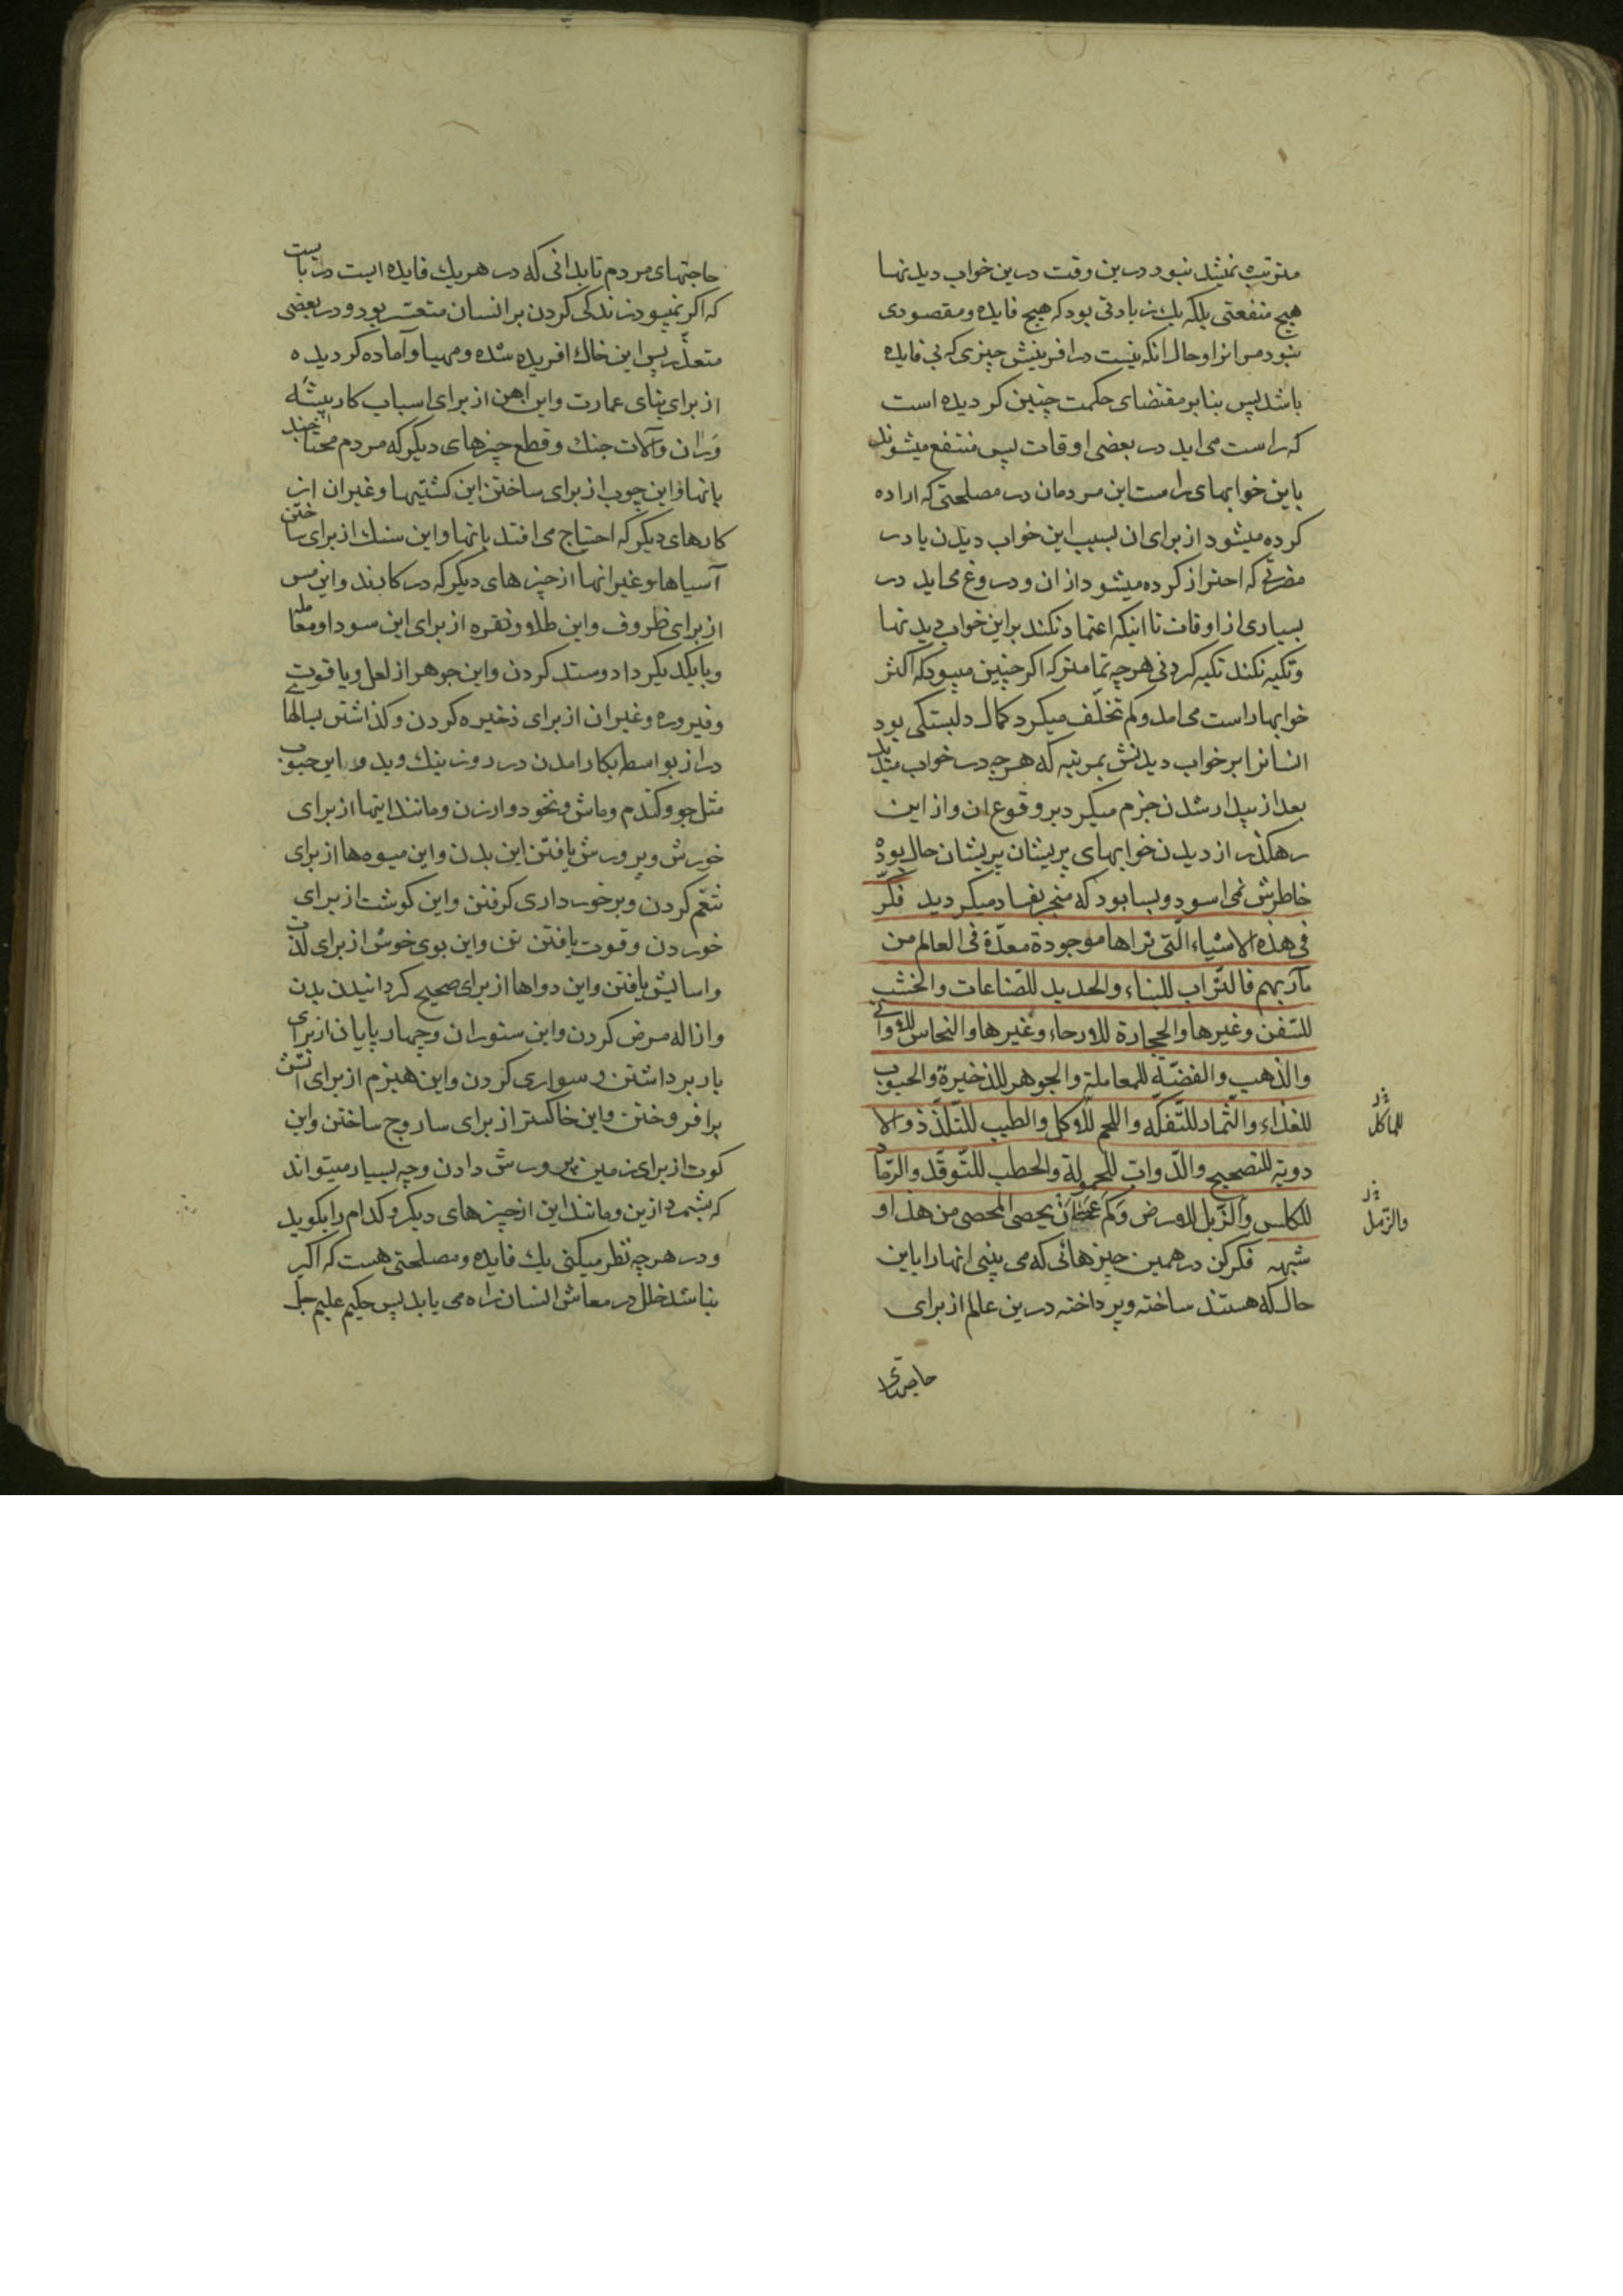 مترتب نمیشد نبود درین وقت درین خواب دیدنها
هیچ منفعتی بلکه یك زیادتی بود که هیچ فایده ومقصودی
نبود مر انرا وحال انکه نیست در افرینش چیزی که بی فایده
باشد پس بنا بر مقتضای حکمت چنین کردیده است
که راست می اید در بعضی اوقات پس منتفع میشوند
باین خوابهای راست این مردمان در مصلحتی که اراده
کرده میشود از برای ان بسبب این خواب دیدن یا در
مضرتی که احتراز کرده میشود از ان ودروغ می اید در
بسیاری از اوقات تا اینکه اعتماد نکند بر این خواب دیدنها
وتکیه نکند تکیه کردنی هرچه تمامتر که اکر چنین میبود که اکثر
خوابها راست می امد وکم تخلّف میکرد کمال دلبستکی بود
انسانرا بر خواب دیدنش بمرتبه که هرچه در خواب میدید
بعد از بیدار شدن جزم میکرد بر وقوع ان واز این
رهکذر از دیدن خوابهای پریشان پریشان حال بوده
خاطرش نمی اسود وبسا بود که منجر بفساد میکردید فکّر
فی هذه الاشیاء الّتی تراها موجودة معدّة فی العالم من
مآربهم فالتّراب للبناء والحدید للصّناعات والخشب
للسّفن وغیرها والحجارة للارحاء وغیرها والنحاس للاوانی
والذهب والفضّة للمعاملة والجوهر للذخیرة والحبوب
للغذاء والثّمار للتّفکّه واللحم للاوکل والطیب للتّلذّذ والا
للماکل
دویة للتصحیح والدّوابّ للحمولة والحطب للتّوقّد والرّماد
للکلس والزّبل للارض وکم عسی ان یحصی المحصی من هذا و
والرّمل
شبهه فکر کن در همین چیزهائی که می بینی انها را باین
حال که هستند ساخته وپرداخته درین عالم از برای
حاجتهای
حاجتهای مردم تا بدانی که در هر یك فایده ایست در بایست
که اکر نمیبود زندکی کردن بر انسان متعسّر بود ودر بعضی
متعذّر پس این خاك افریده شده ومهیا وآماده کردیده
از برای بنای عمارت واین اهن از برای اسباب کار پیشه
وران وآلات جنك وقطع چیزهای دیکر که مردم محتاجند
بانها واین چوب از برای ساختن این کشتیها وغیر ان از
کارهای دیکر که احتیاج می افتد بانها واین سنك از برای ساختن
آسیاها وغیر انها از چیزهای دیکر که در کارند واین مس
از برای ظروف واین طلا ونقره از برای این سودا ومعامله
وبایکدیکر داد وستد کردن واین جوهر از لعل ویاقوت
وفیروزه وغیر ان از برای ذخیره کردن وکذاشتن بسالهای
دراز بواسطه بکار امدن در روز نیك وبد واین حبوب
مثل جو وکندم وماش ونخود وارزن ومانند اینها از برای
خورش وپرورش یافتن این بدن واین میوه ها از برای
تنعّم کردن وبرخورداری کرفتن واین کوشت از برای
خوردن وقوت یافتن تن واین بوی خوش از برای لذّت
واسایش یافتن واین دواها از برای صحیح کردانیدن بدن
وازاله مرض کردن واین ستوران وچهارپایان از برای
بار برداشتن وسواری کردن واین هیزم از برای اتش
برافروختن واین خاکستر از برای ساروج ساختن واین
کوت از برای زمین پرورش دادن وچه بسیار میتواند
که بشمرد ازین ومانند این از چیزهای دیکر وکدام را بکوید
ودر هرچه نظر میکنی یك فایده ومصلحتی هست که اکر
نباشد خلل در معاش انسان راه می یابد پس حکیم علیم جلّ